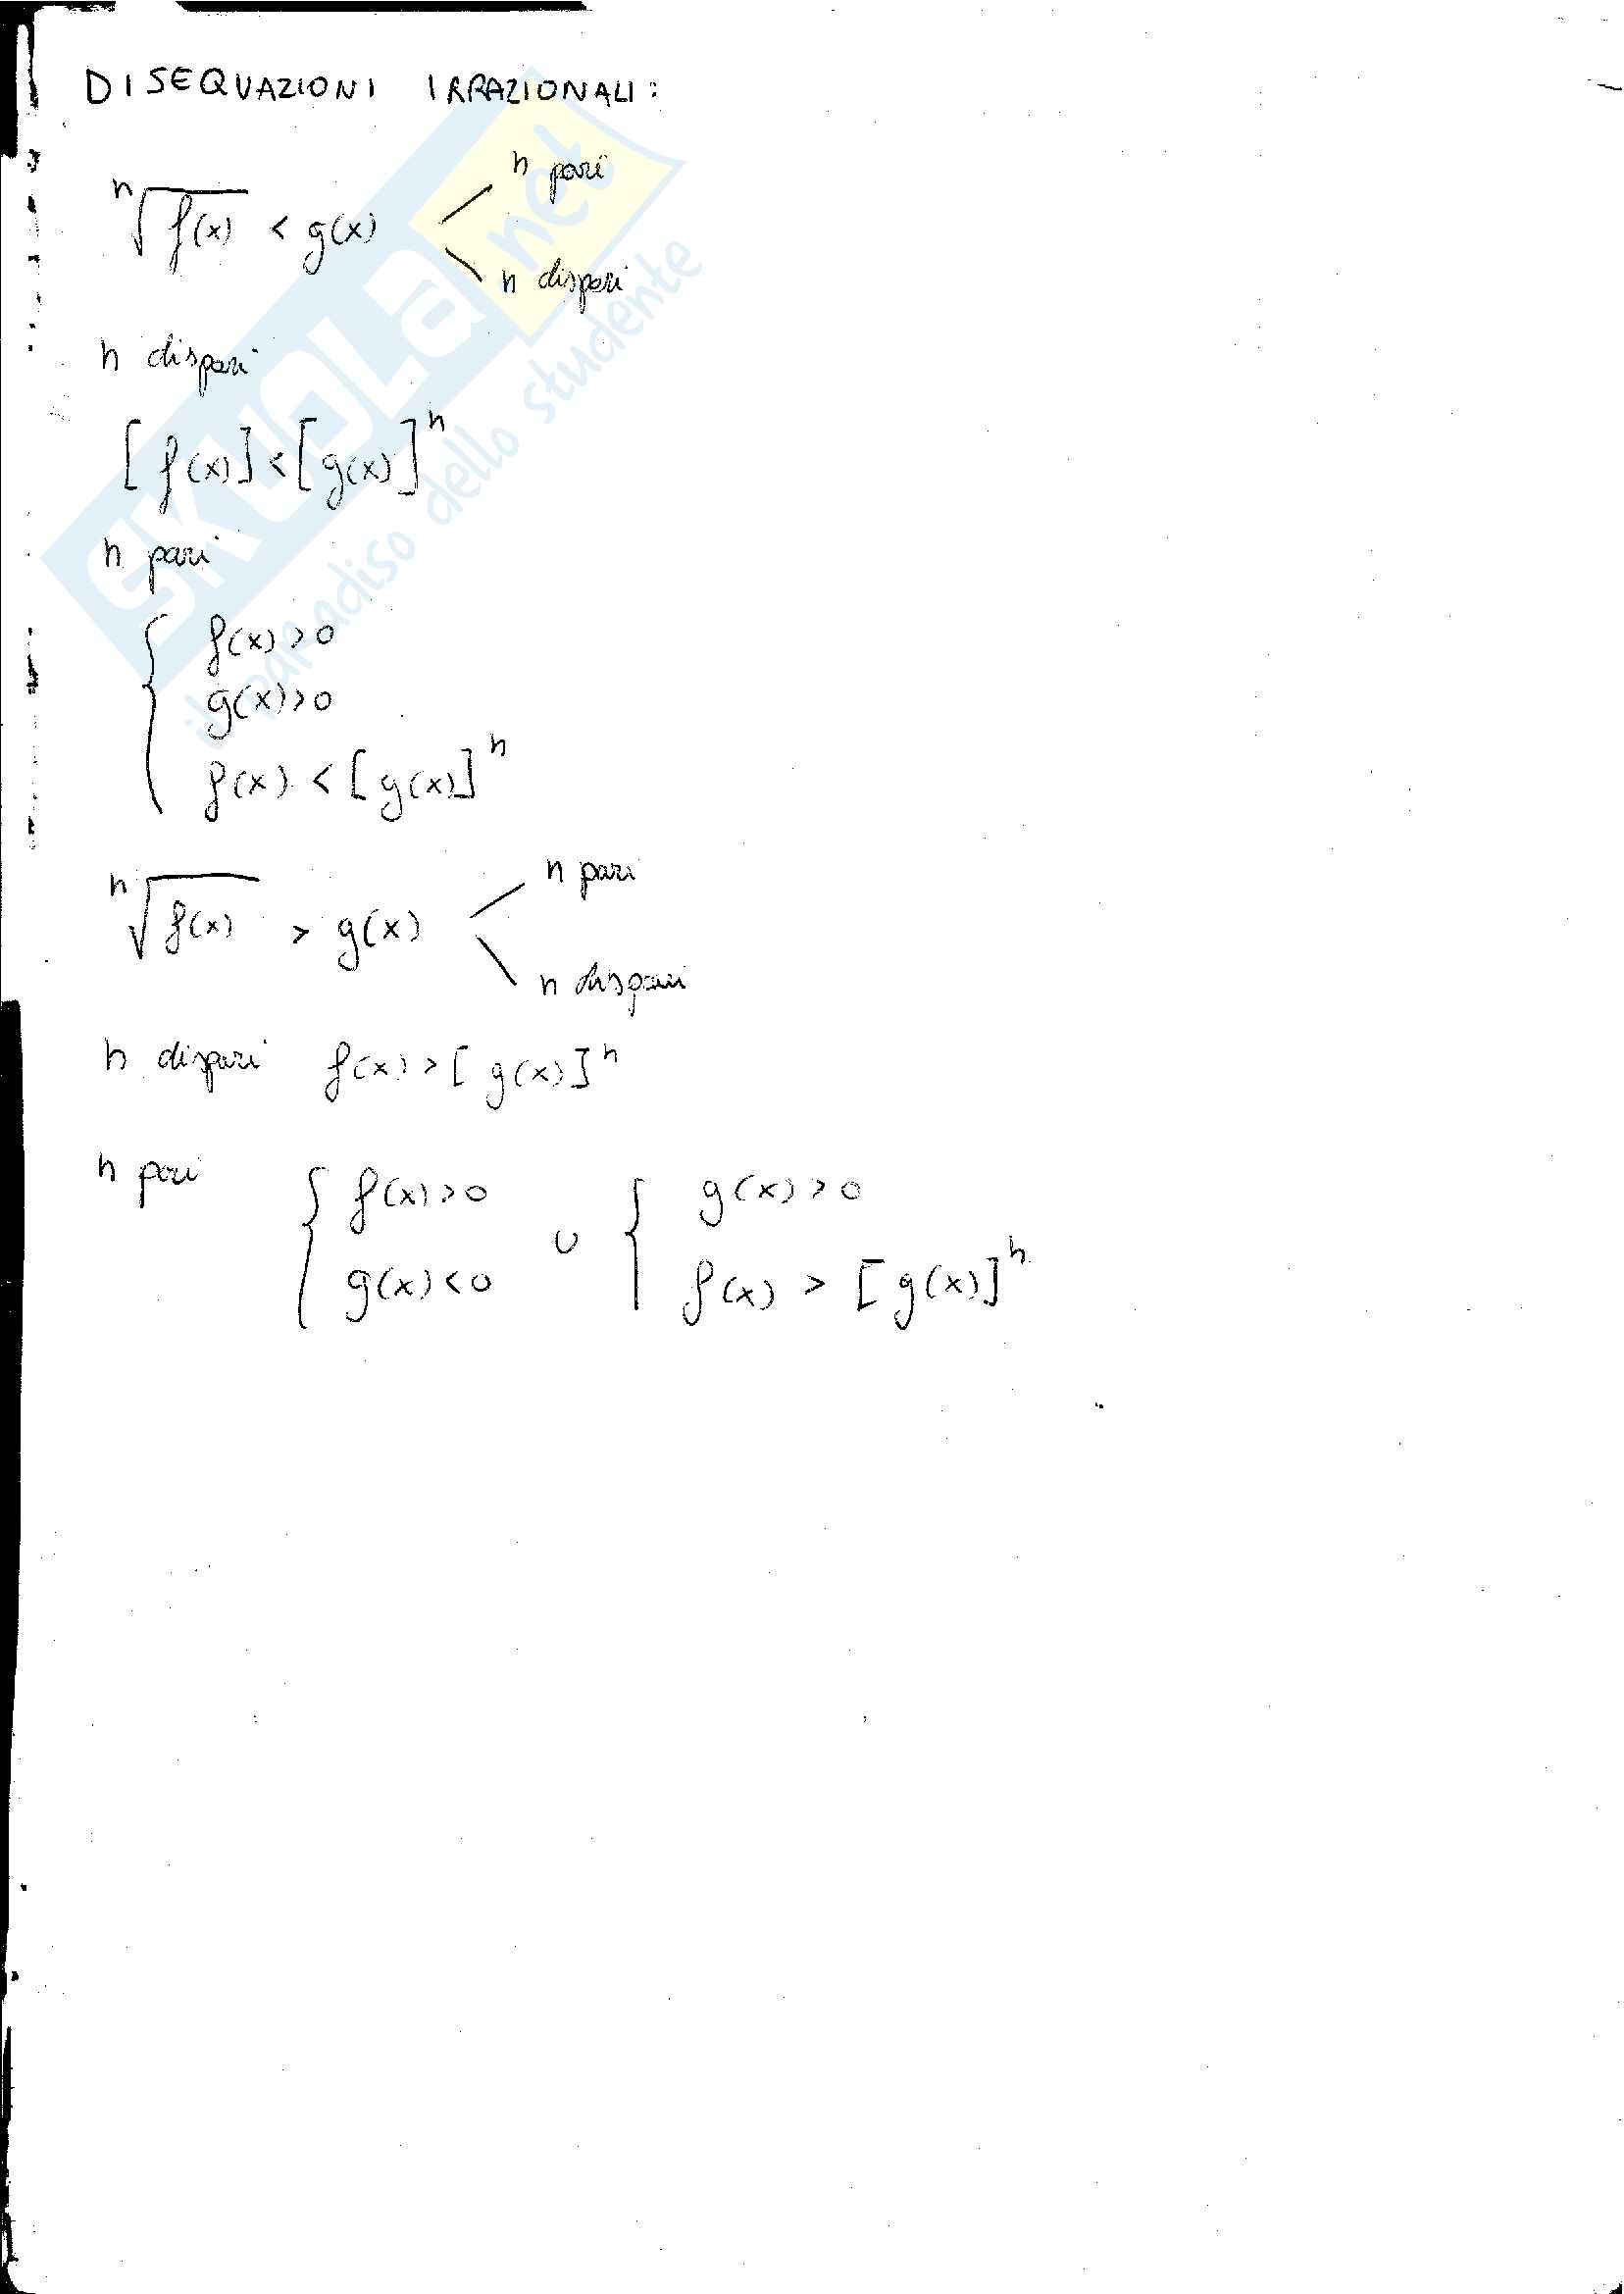 DISEQUAZIONI IRRAZIONALI:
n√f(x) < g(x)
n pari
n dispari
n dispari
[f(x)] < [g(x)]^n
n pari
{ f(x) > 0
g(x) > 0
f(x) < [g(x)]^n
n√f(x) > g(x)
n pari
n dispari
n dispari f(x) > [g(x)]^n
n pari { f(x) > 0 ∪ { g(x) > 0
g(x) < 0 f(x) > [g(x)]^n
SKUOLa.net
il paradiso dello studente